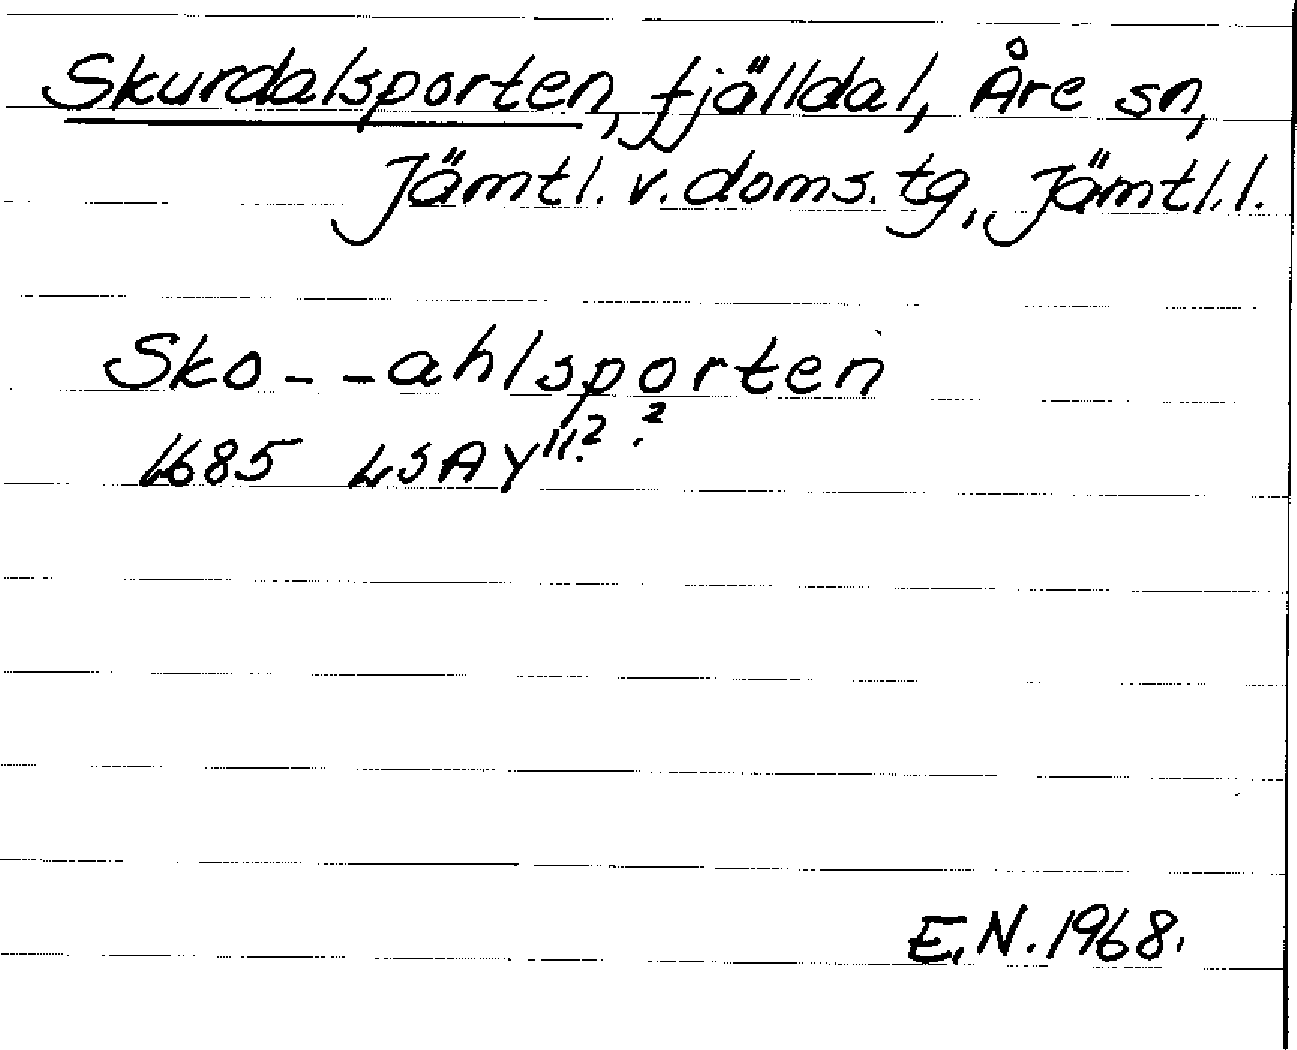 Skurdalsporten, fjälldal, Åre sn,
Jämtl. v. doms. tg, Jämtl. l.
Sko--ahlsporten
1685 LSA Y11:2 :2
E.N. 1968.